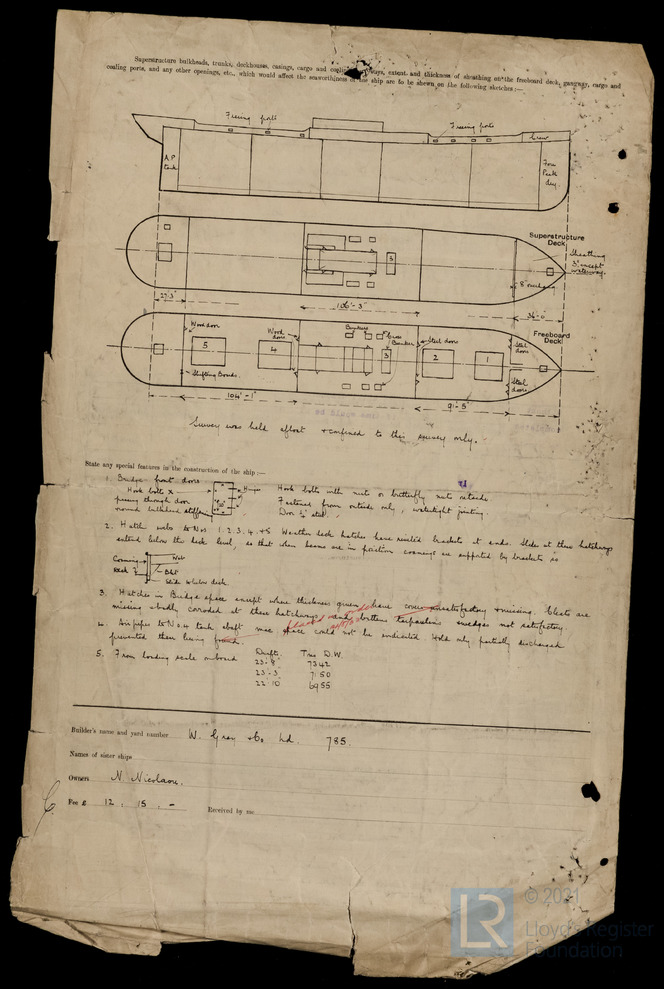 Superstructure bulkheads, trunks, deckhouses, casings, cargo and extent and thickness of sheathing on the freeboard deck, gangway, cargo and
coaling ports, and any other openings, etc., which would affect the seaworthiness of the ship are to be shewn on the following sketches:—
Freeing ports
Freeing ports
A.P. tank
Fore Peak
Superstructure Deck
Sheathing 3" except waterway.
27'3"
106'-3"
36'-0"
Freeboard Deck
Wood door
Wood doors
Bunkers
Cross Bunker
Steel doors
Steel doors
5
4
3
2
1
Shifting Boards
Steel doors
104'-1"
91'-5"
Survey was held afloat & confined to this survey only.
State any special features in the construction of the ship:—
1. Bridge front doors
Hook bolts x
passing through door
round bulkhead stiffr
Hinges
Hook bolts with nuts or butterfly nuts outside
Fastened from outside only, watertight jointing.
Door ¼" steel.
2. Hatch webs to Nos 1. 2. 3. 4. & 5 Weather deck hatches have brackets at ends. Slides at these hatchways
extend below the deck level, so that when beams are in position coamings are supported by brackets
Coaming
Deck
Web
Bkt
Slide to below deck.
3. Hatches in Bridge space except where thickness given have covers unsatisfactory & missing. Cleats are
missing & badly corroded at these hatchways and battens tarpaulins wedges not satisfactory.
4. Air pipes to No 4 tank abaft space could not be indicated. Hold only partially discharged
prevented them being found.
5. From loading scale onboard
Draft. Tons D.W.
23'-9" 7342
23'-3" 7150
22'10" 6955
Builder's name and yard number W. Gray & Co Ld. 785.
Names of sister ships
Owners N Nicolaou.
Fee £ 12 . 15 . –
Received by me
LR
© 2021
Lloyd's Register
Foundation